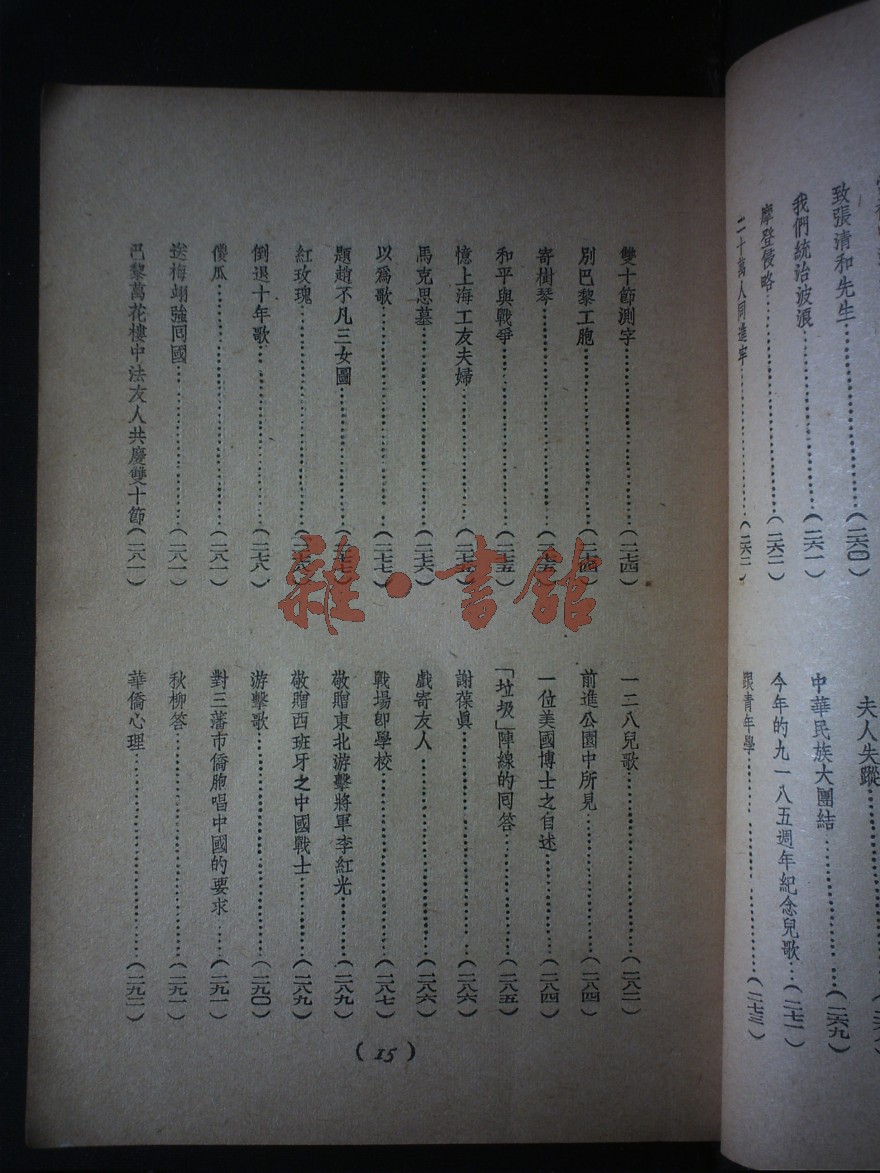 致張清和先生……(二六〇)
我們統治波浪……(二六一)
摩登侵略……(二六二)
二十萬人同進牢……
夫人失蹤……
中華民族大團結……(二六九)
今年的九一八五週年紀念兒歌…(二七一)
跟青年學……(二七三)
雙十節測字……(二七四)
別巴黎工胞……(二七四)
寄樹琴……(二七五)
和平與戰爭……(二七五)
憶上海工友夫婦……(二七五)
馬克思墓……(二七六)
以爲歌……(二七七)
題趙不凡三女圖……(二七七)
紅玫瑰……(二七八)
倒退十年歌……(二七八)
傻瓜……(二八一)
送梅翊強囘國……(二八一)
巴黎萬花樓中法友人共慶雙十節(二八一)
一二八兒歌……(二八二)
前進公園中所見……(二八四)
一位美國博士之自述……(二八四)
「垃圾」陣線的囘答……(二八五)
謝葆眞……(二八六)
戲寄友人……(二八六)
戰場卽學校……(二八七)
敬贈東北游擊將軍李紅光……(二八九)
敬贈西班牙之中國戰士……(二八九)
游擊歌……(二九〇)
對三藩市僑胞唱中國的要求……(二九一)
秋柳答……(二九一)
華僑心理……(二九二)
(15)
雜·書館